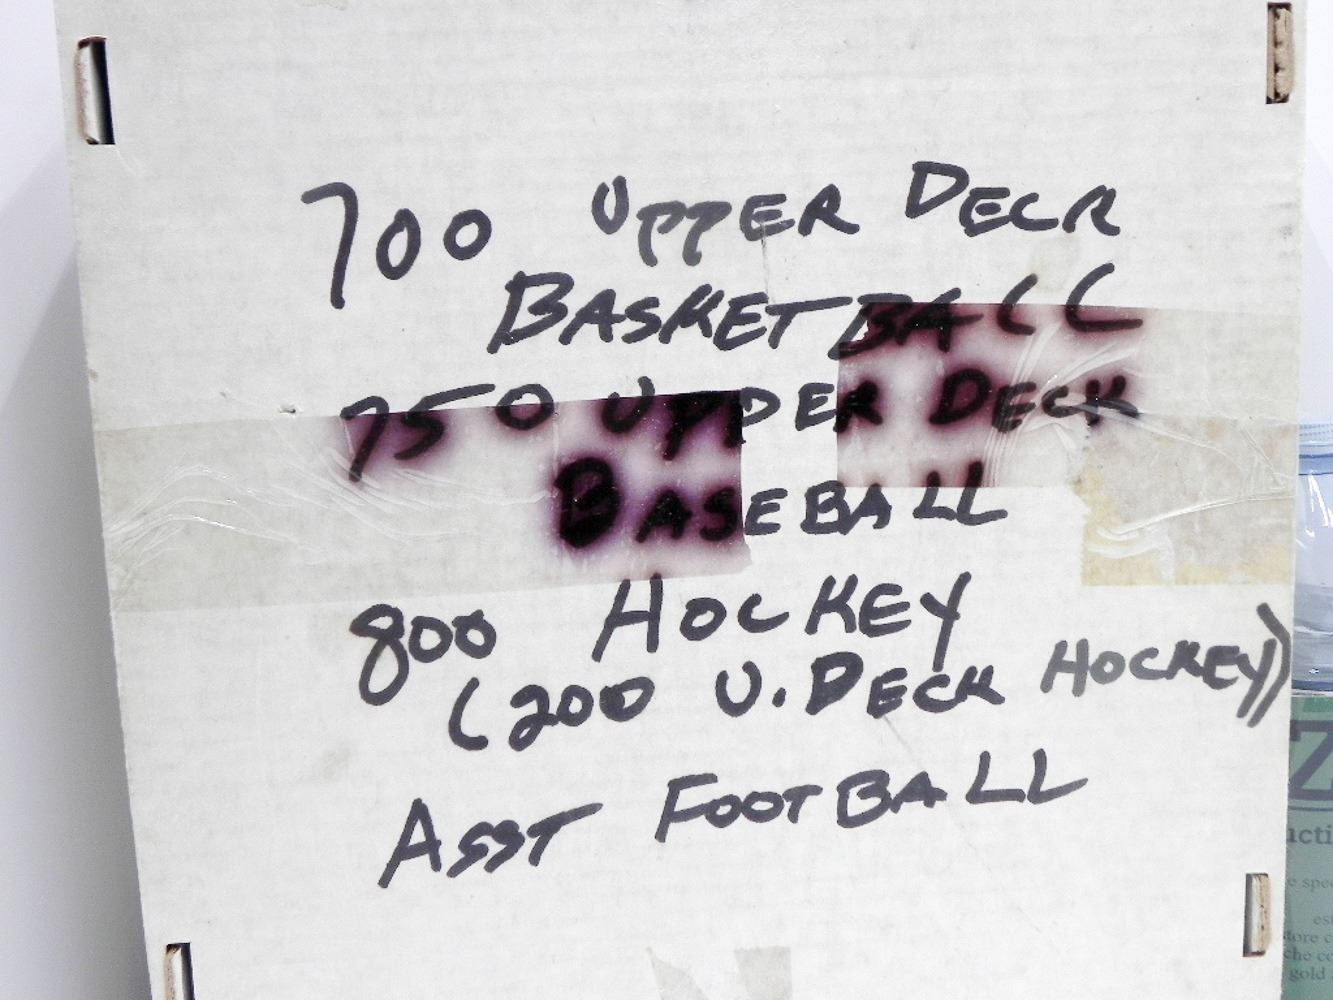 700 UPPER DECK
BASKETBALL
750 UPPER DECK
BASEBALL
800 HOCKEY
(200 U.DECK HOCKEY)
ASST FOOTBALL
Z
ucti
e spe
es
tore c
che co
gold